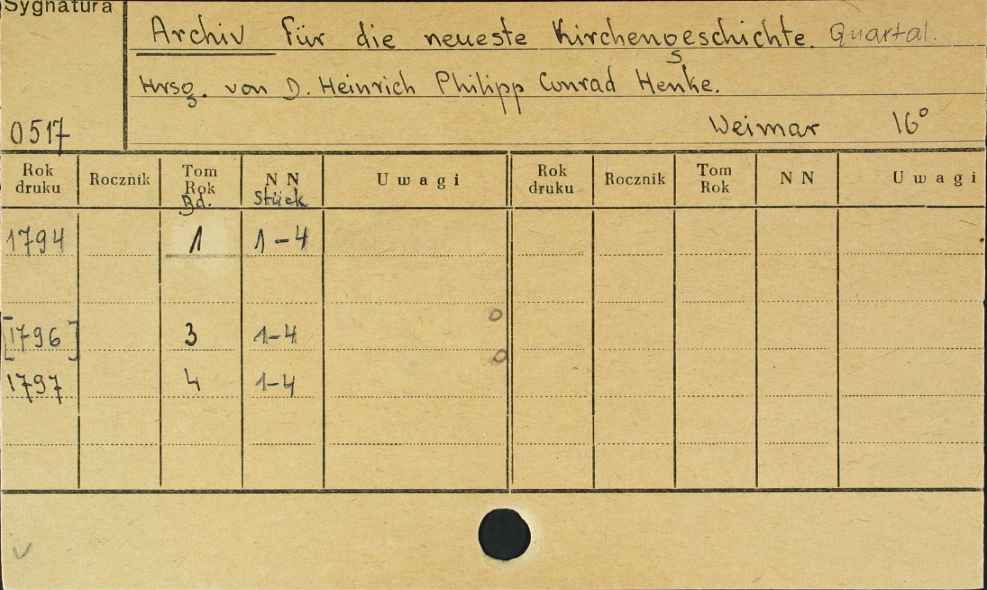 Sygnatura
Archiv für die neueste Kirchengeschichte. Quartal.
Hrsg. von D. Heinrich Philipp Conrad Henke.
0517 Weimar 16°
Rok druku Rocznik Tom Rok Bd. NN Stück Uwagi Rok druku Rocznik Tom Rok NN Uwagi
1794 1 1-4
[1796] 3 1-4
1797 4 1-4